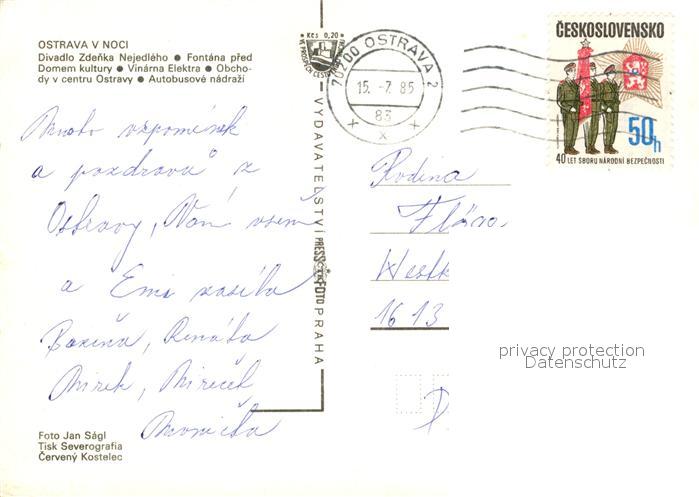 OSTRAVA V NOCI
Divadlo Zdeňka Nejedlého ● Fontána před
Domem kultury ● Vinárna Elektra ● Obcho-
dy v centru Ostravy ● Autobusové nádraží
Mnoho vzpomínek
a pozdravů z
Ostravy, Vám všem
a Emi zasílá
Božena, Renáta
Mirek, Mireček
Monička
Foto Jan Ságl
Tisk Severografia
Červený Kostelec
Kčs 0,20
VYDAVATELSTVÍ PRESSFOTO PRAHA
702 00 OSTRAVA 2
15. -7. 85
83
x x x
ČESKOSLOVENSKO
50h
40 LET SBORU NÁRODNÍ BEZPEČNOSTI
Rodina
1613
D
privacy protection
Datenschutz